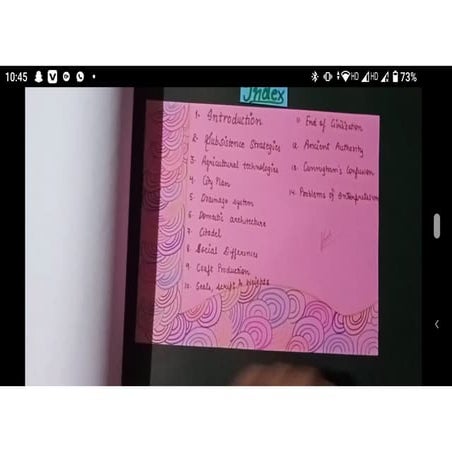 10:45
HD HD 73%
Index
1. Introduction
2. Subsistence Strategies
3. Agricultural technologies
4. City Plan
5. Drainage system
6. Domestic architecture
7. Citadel
8. Social Difference
9. Craft Production
10. Seals, script & weights
11. End of Civilization
12. Ancient Authority
13. Cunnigham's Confusion
14. Problems of Interpretation